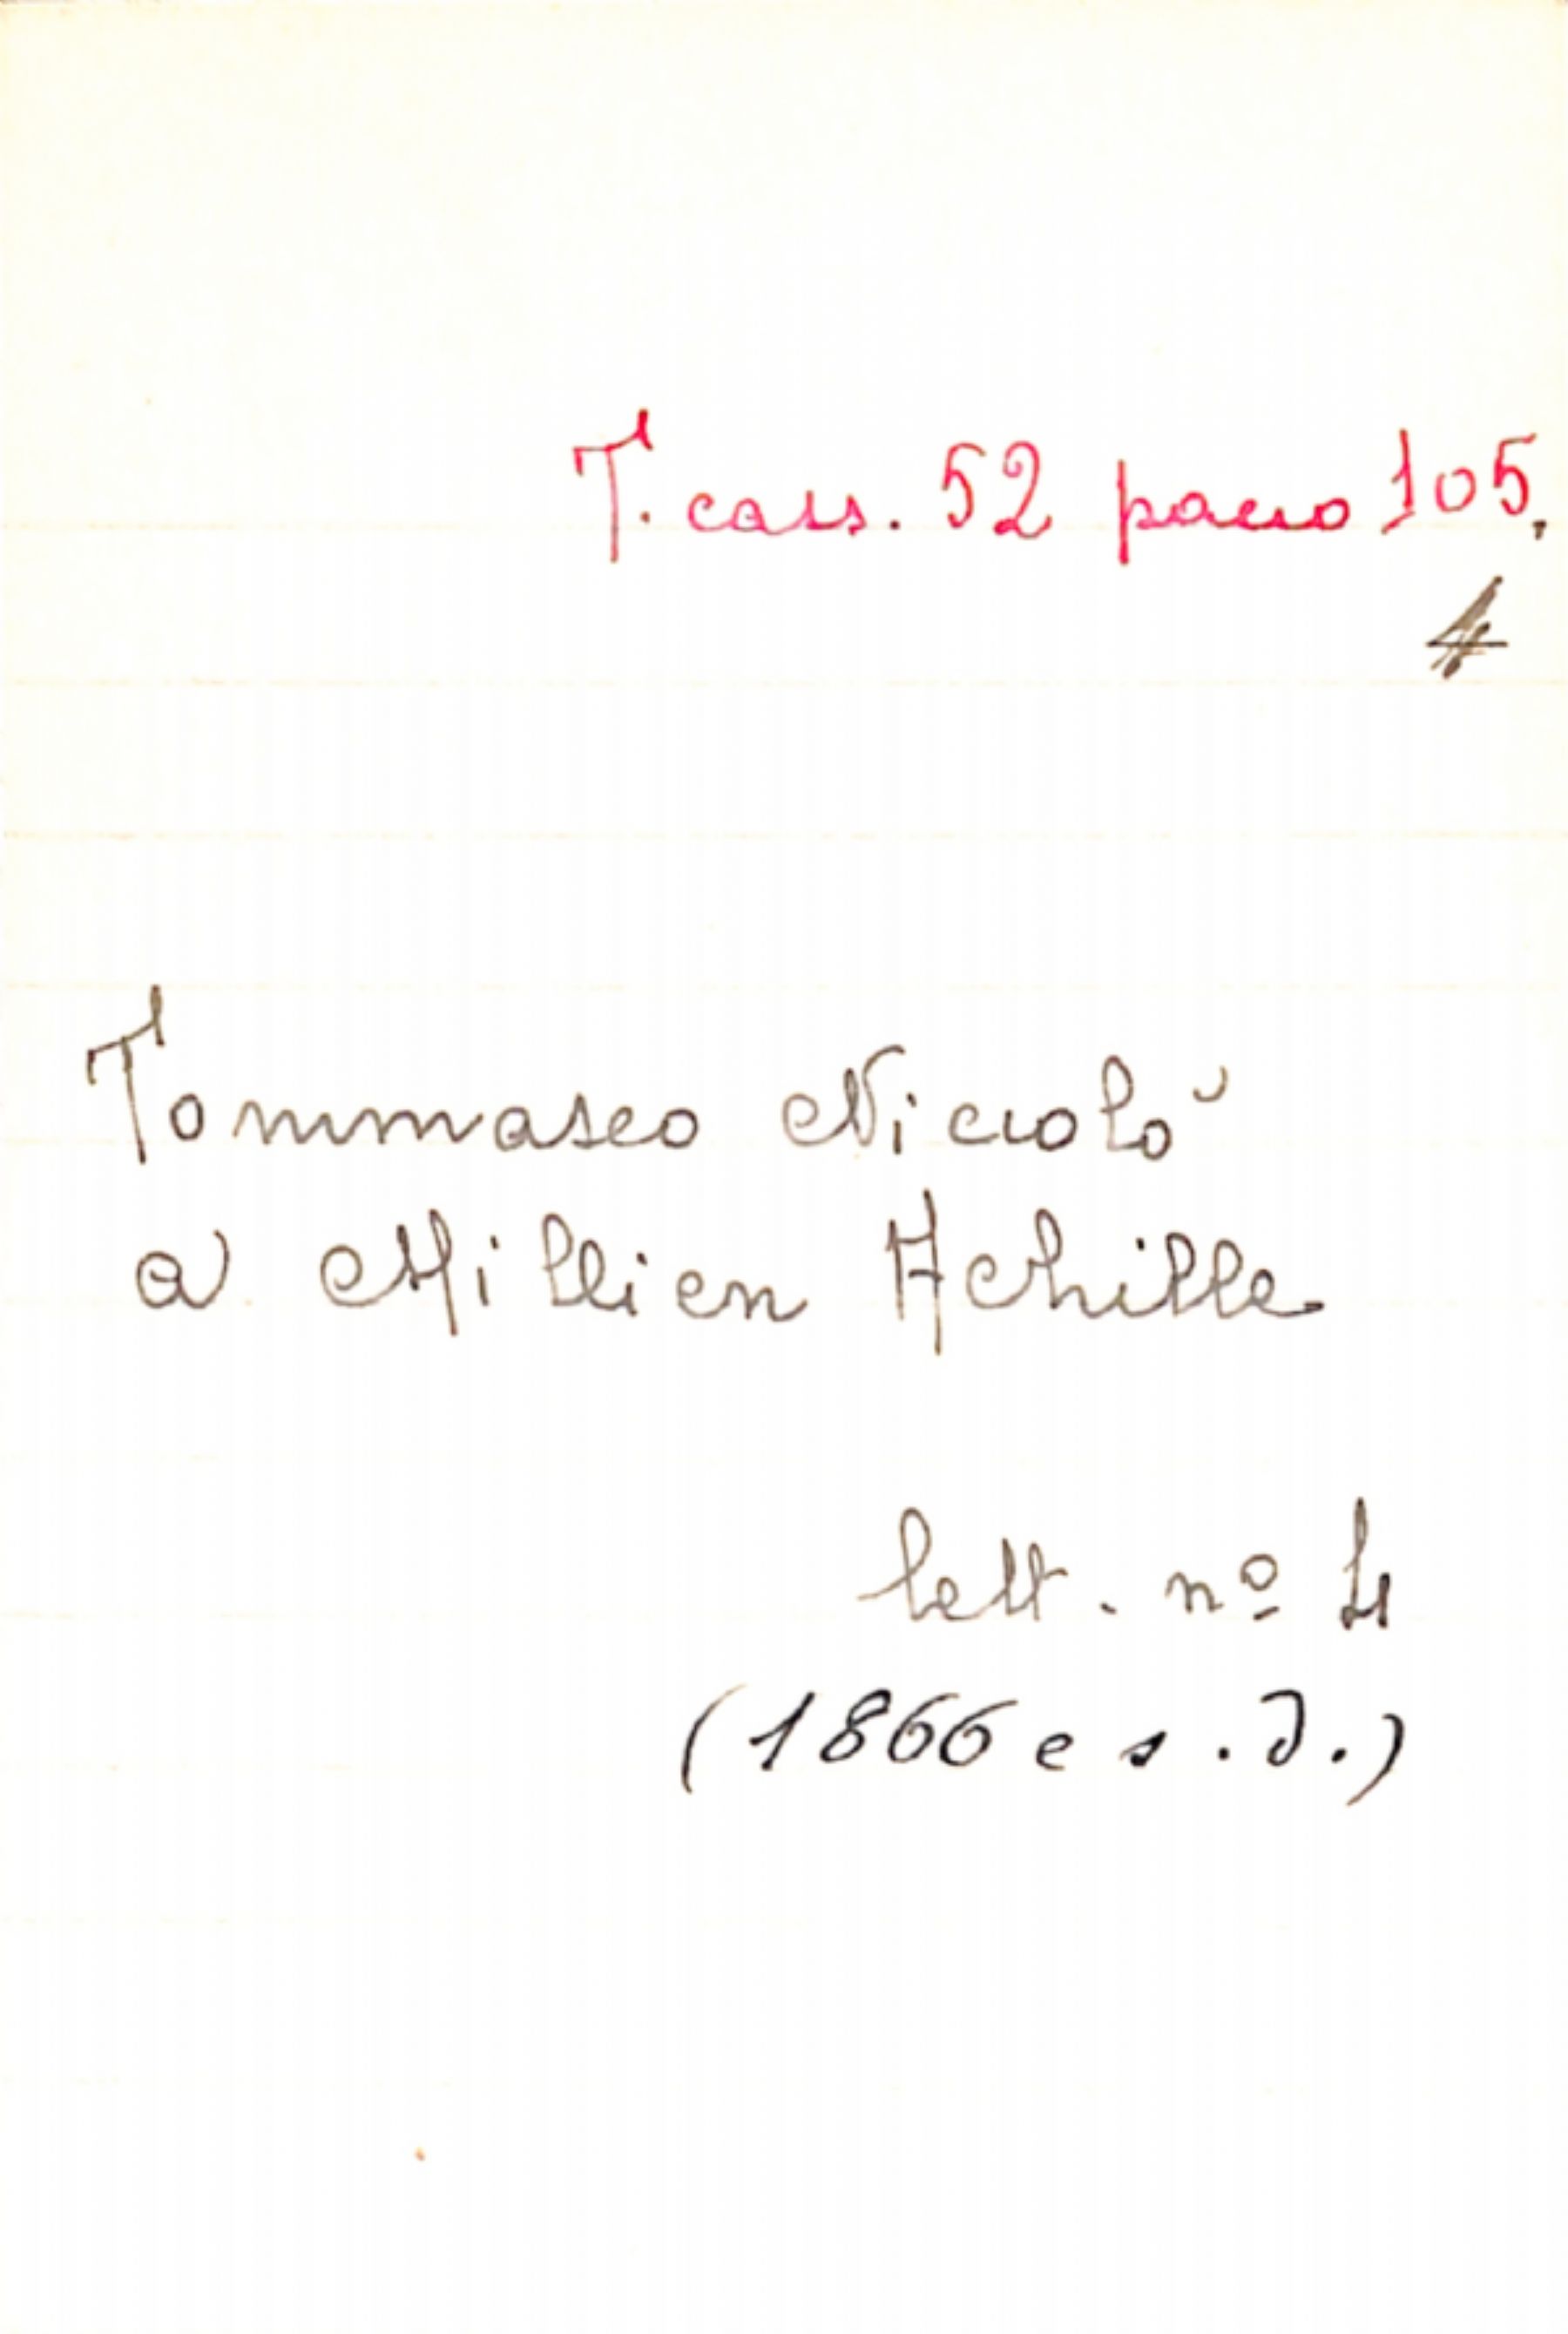 T. cass. 52 pacco 105.
4
Tommaseo Niccolò
a Millien Achille
lett. nº 4
(1866 e s.d.)